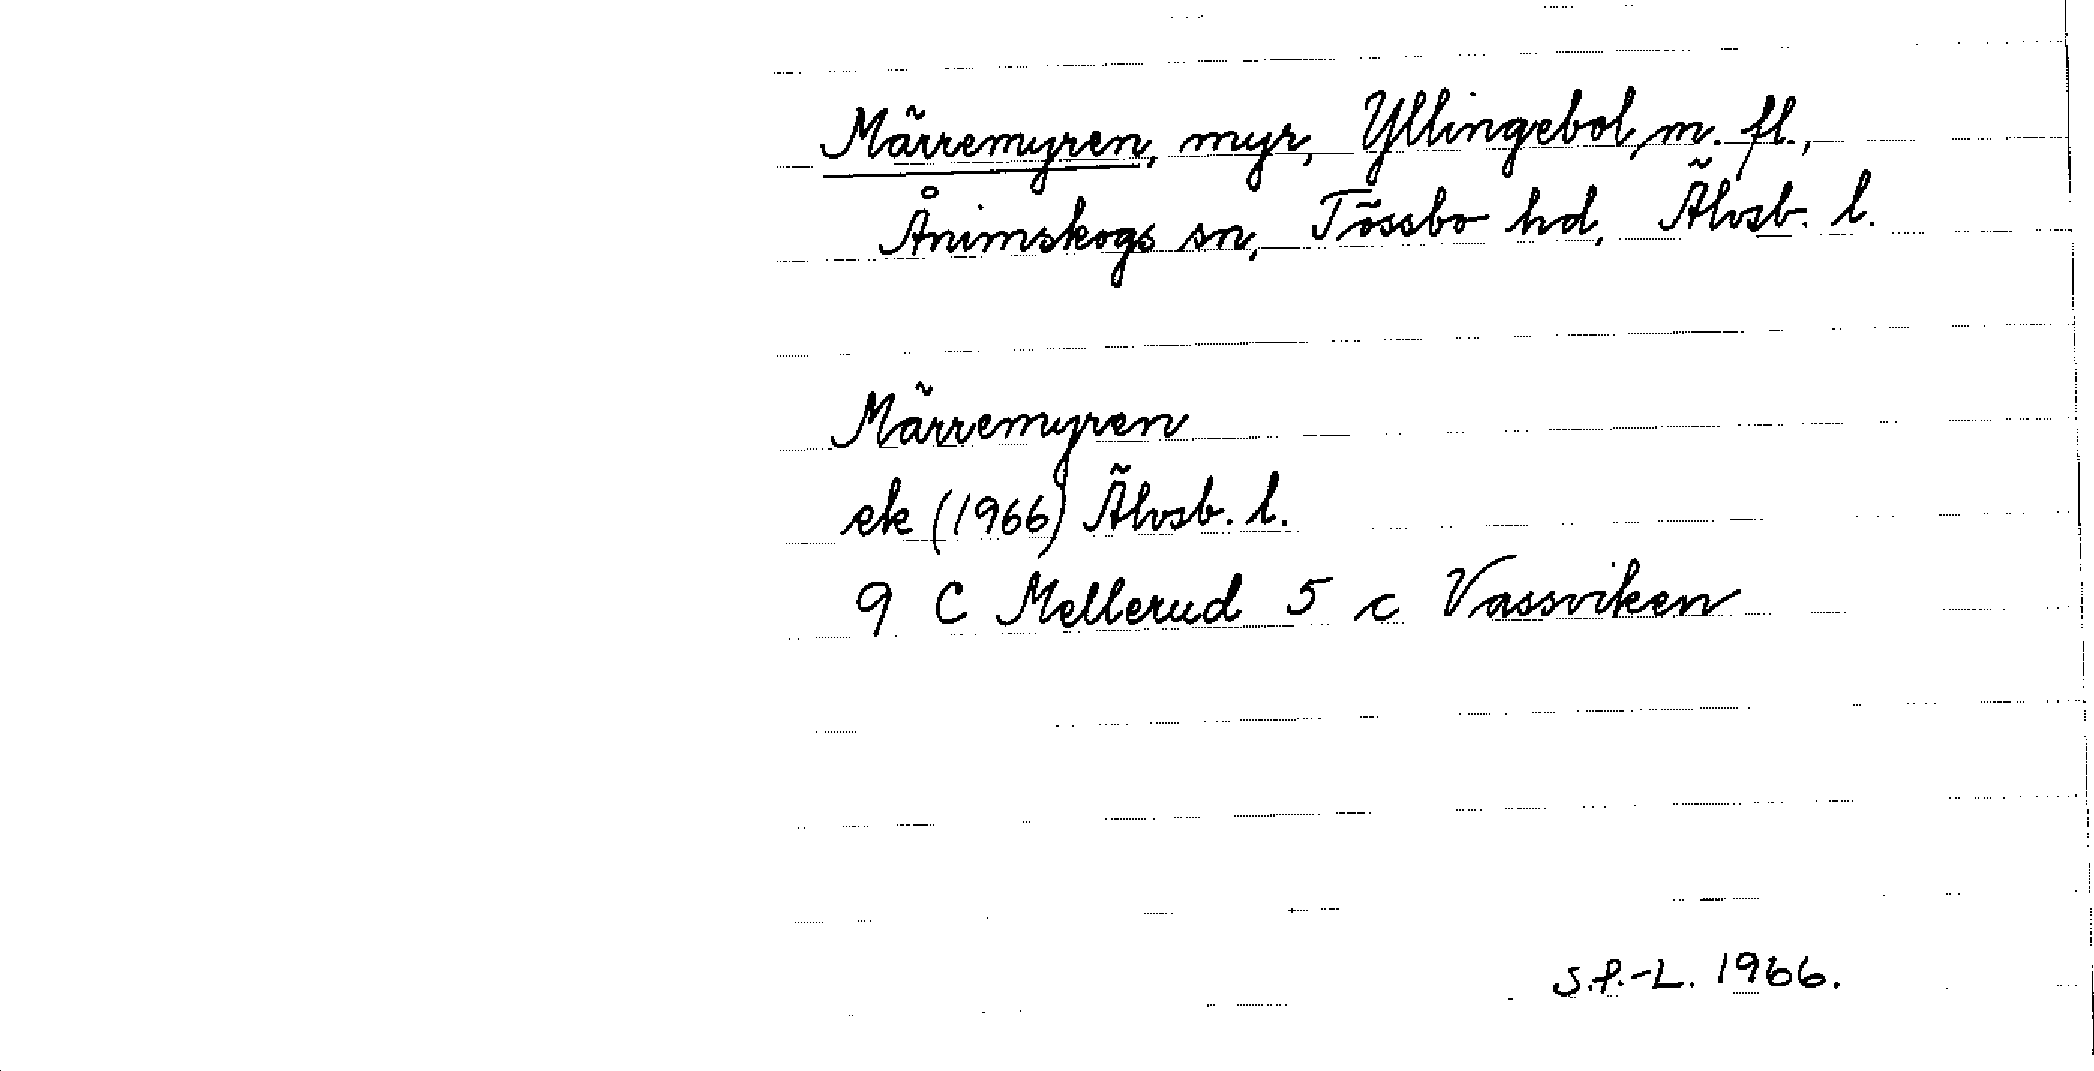 Märremyren, myr, Yllingebol m. fl.,
Ånimskogs sn, Tössbo hd, Älvsb. l.
Märremyren
ek (1966) Älvsb. l.
9 C Mellerud 5 c Vassviken
S.P.-L. 1966.